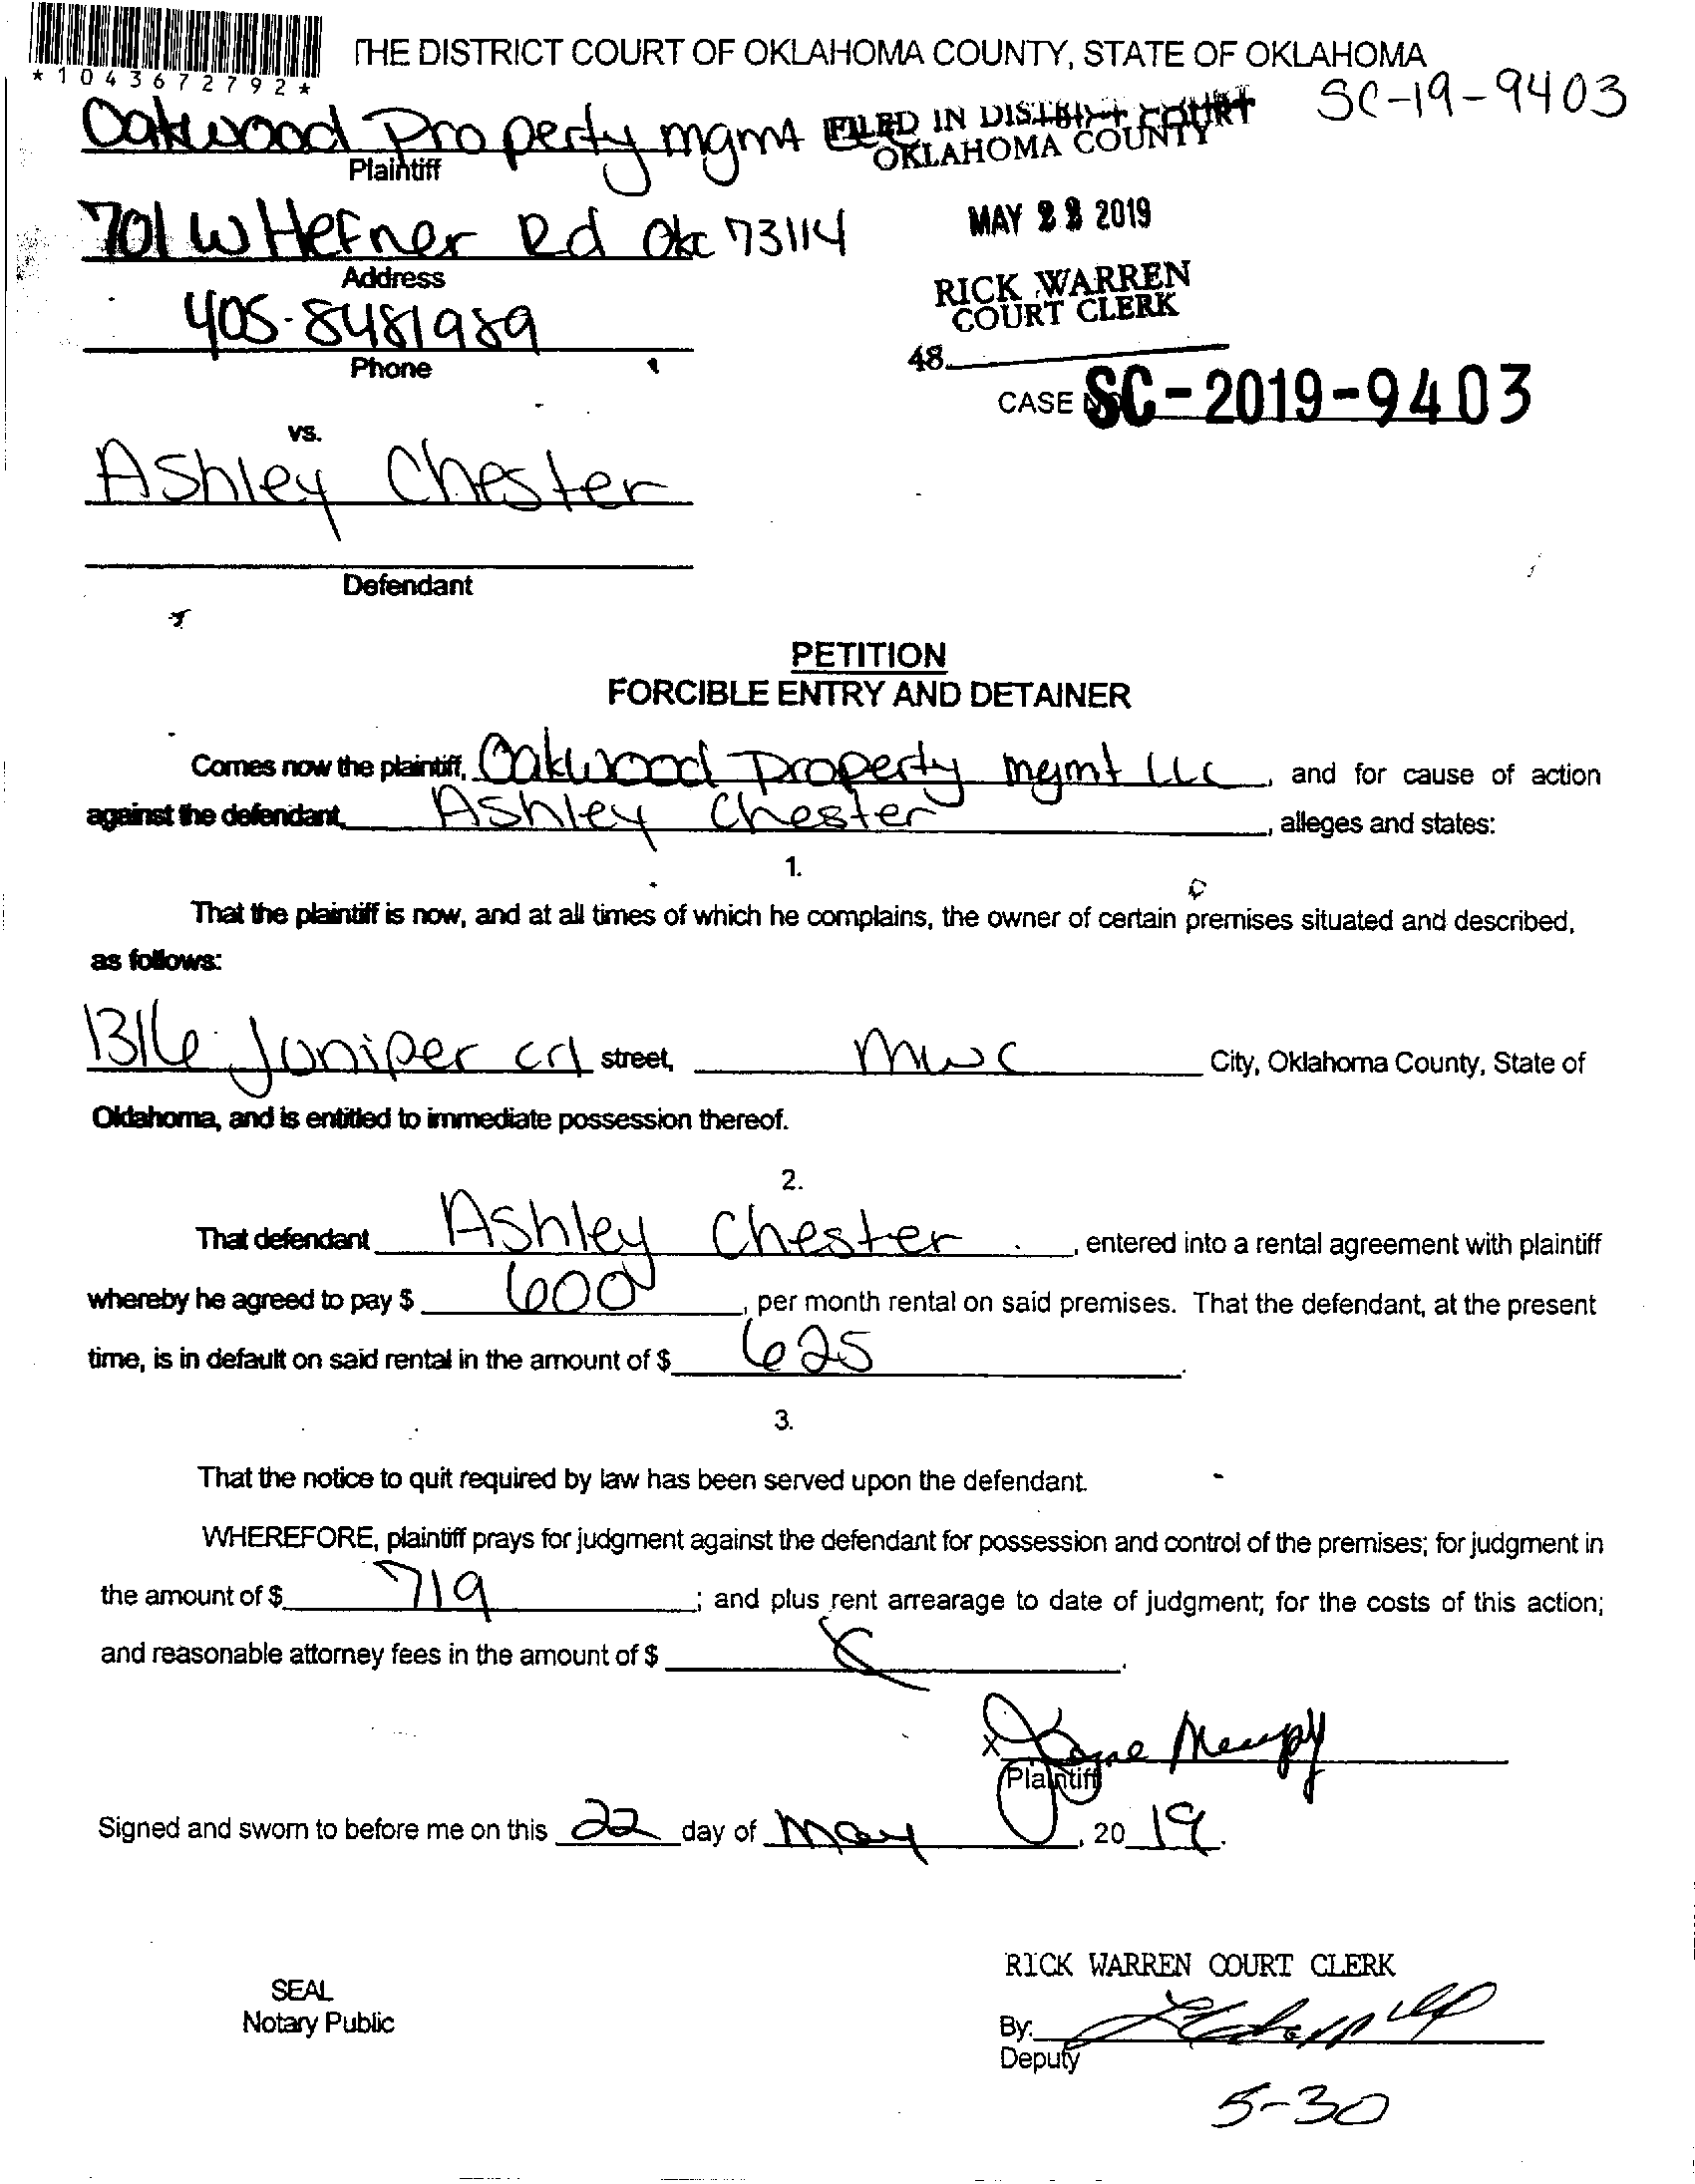 *1043672792*
THE DISTRICT COURT OF OKLAHOMA COUNTY, STATE OF OKLAHOMA
SC-19-9403
Oakwood Property mgmt LLC
FILED IN DISTRICT COURT
OKLAHOMA COUNTY
Plaintiff
701 W Hefner Rd Okc 73114
MAY 2 2019
Address
RICK WARREN
COURT CLERK
405-8481989
Phone
48
CASE NO. SC-2019-9403
vs.
Ashley Chester
Defendant
PETITION
FORCIBLE ENTRY AND DETAINER
Comes now the plaintiff, Oakwood Property mgmt LLC, and for cause of action
against the defendant, Ashley Chester, alleges and states:
1.
That the plaintiff is now, and at all times of which he complains, the owner of certain premises situated and described,
as follows:
1316 Juniper street, MWC City, Oklahoma County, State of
Oklahoma, and is entitled to immediate possession thereof.
2.
That defendant Ashley Chester, entered into a rental agreement with plaintiff
whereby he agreed to pay $ 600, per month rental on said premises. That the defendant, at the present
time, is in default on said rental in the amount of $ 625.
3.
That the notice to quit required by law has been served upon the defendant.
WHEREFORE, plaintiff prays for judgment against the defendant for possession and control of the premises; for judgment in
the amount of $ 719; and plus rent arrearage to date of judgment; for the costs of this action;
and reasonable attorney fees in the amount of $
x
Plaintiff
Signed and sworn to before me on this 22 day of May, 20 19.
RICK WARREN COURT CLERK
SEAL
Notary Public
By:
Deputy
5-30